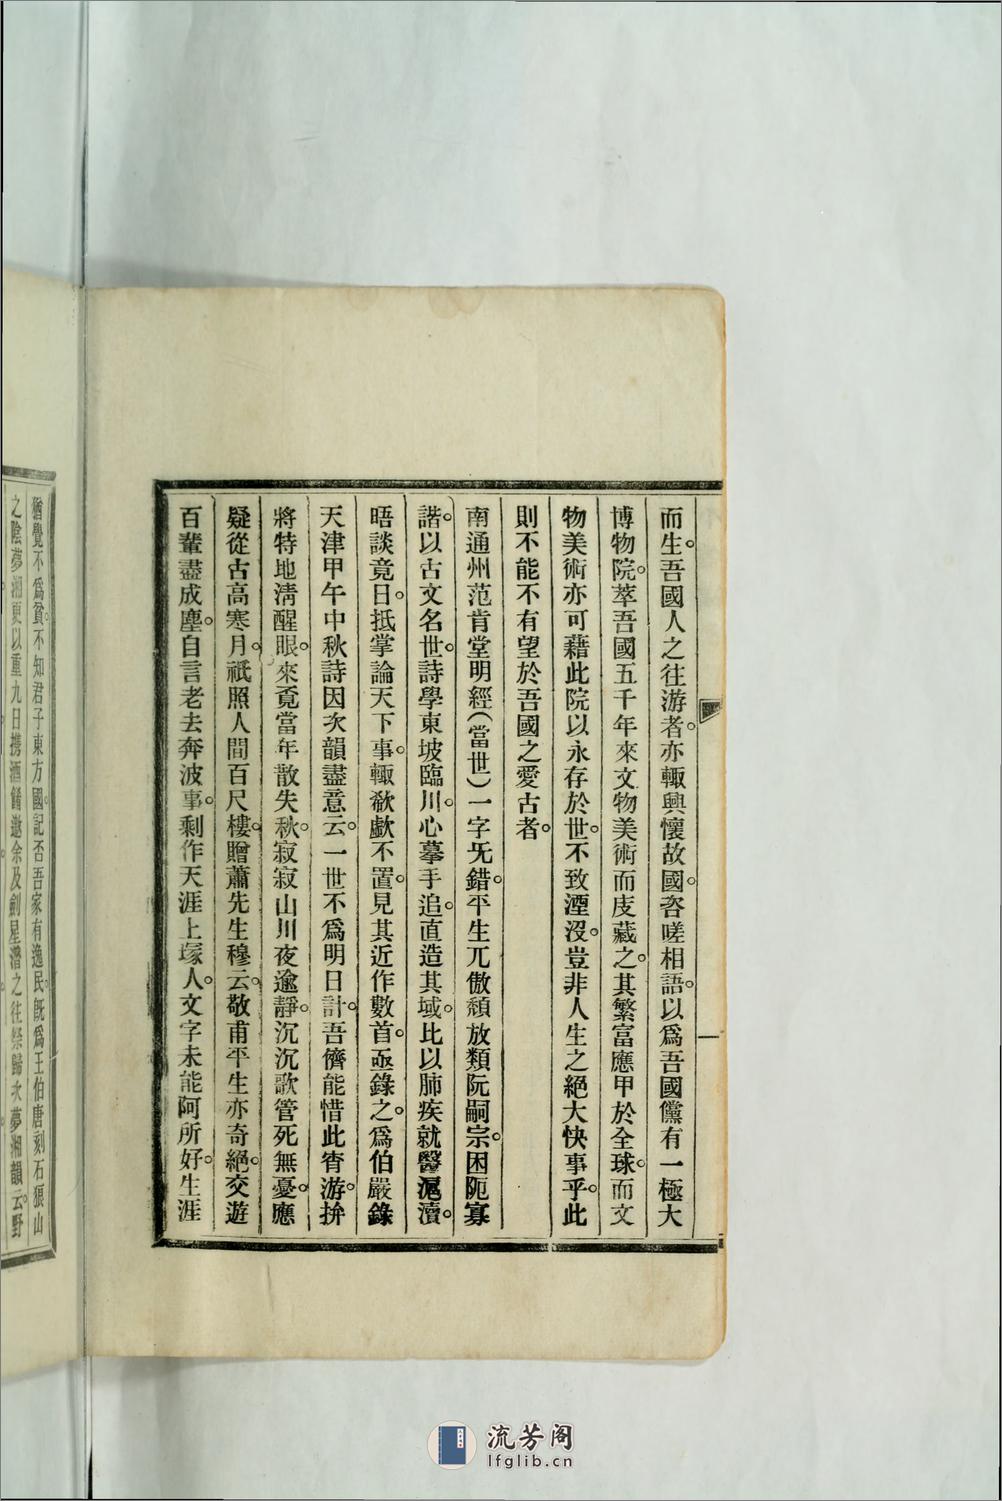 而生。吾國人之往游者。亦輒興懷故國。咨嗟相語。以爲吾國儻有一極大
博物院。萃吾國五千年來文物美術而庋藏之。其繁富應甲於全球。而文
物美術亦可藉此院以永存於世。不致湮沒。豈非人生之絕大快事乎。此
則不能不有望於吾國之愛古者。
南通州范肯堂明經(當世)一字无錯。平生兀傲頹放類阮嗣宗。困阨寡
諧。以古文名世。詩學東坡臨川。心摹手追。直造其域。比以肺疾就醫滬瀆。
晤談竟日。抵掌論天下事。輒欷歔不置。見其近作數首。亟錄之。爲伯嚴錄
天津甲午中秋詩因次韻盡意云。一世不爲明日計。吾儕能惜此宵游。拚
將特地淸醒眼。來覓當年散失秋。寂寂山川夜逾靜。沉沉歌管死無憂。應
疑從古高寒月。祇照人間百尺樓。贈蕭先生穆云。敬甫平生亦奇絕。交遊
百輩盡成塵。自言老去奔波事。剩作天涯上塚人。文字未能阿所好。生涯
猶覺不爲貧。不知君子東方國。記否吾家有逸民。旣爲王伯唐刻石狼山
之陰夢湘更以重九日攜酒餚邀余及劍星潛之往祭歸次夢湘韻云。野
流芳阁
lfglib.cn